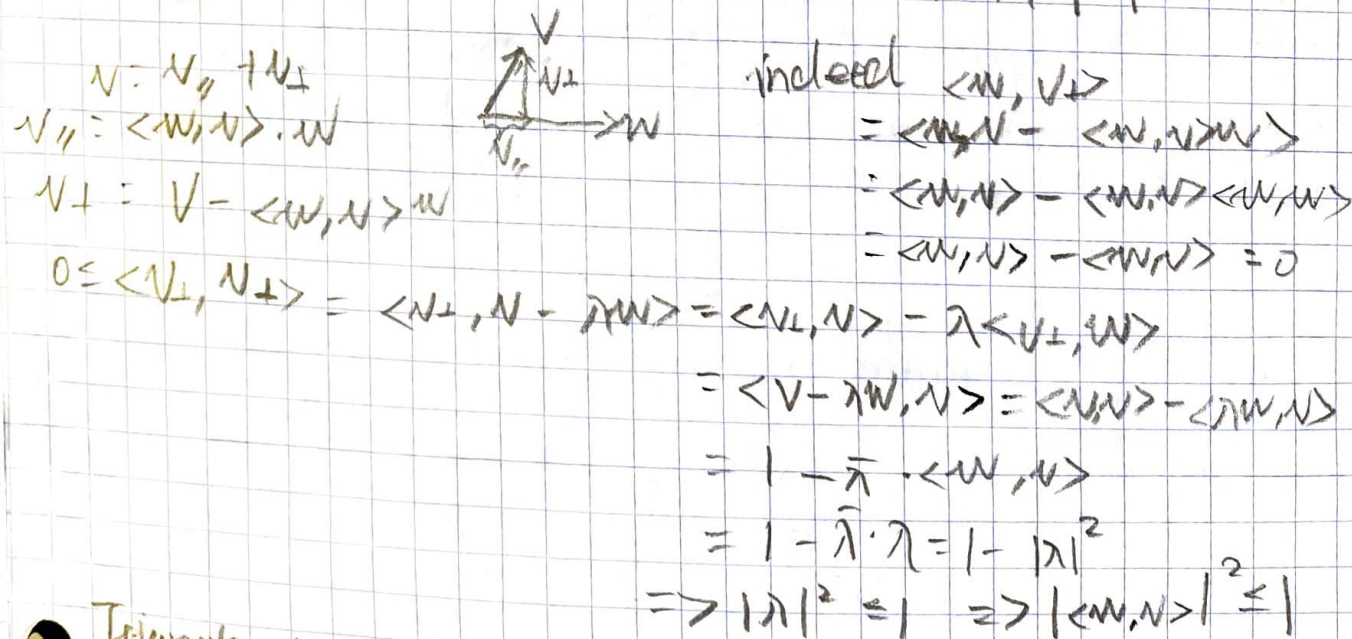 v = v∥ + v⊥
v∥ = <w,v>·w
v⊥ = v - <w,v>w
v
v⊥
w
v∥
indeed <w, v⊥>
= <w,v - <w,v>w>
= <w,v> - <w,v><w,w>
= <w,v> - <w,v> = 0
0 ≤ <v⊥, v⊥> = <v⊥, v - λw> = <v⊥, v> - λ<v⊥, w>
= <v - λw, v> = <v,v> - <λw, v>
= 1 - λ̄ · <w, v>
= 1 - λ̄·λ = 1 - |λ|²
=> |λ|² ≤ 1 => |<w,v>|² ≤ 1